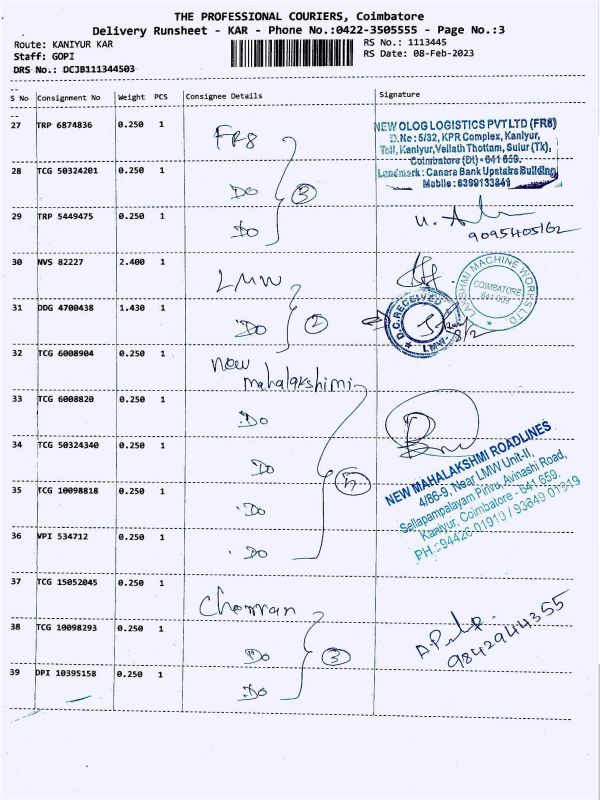 THE PROFESSIONAL COURIERS, Coimbatore
Delivery Runsheet - KAR - Phone No.:0422-3505555 - Page No.:3
Route: KANIYUR KAR RS No.: 1113445
Staff: GOPI RS Date: 08-Feb-2023
DRS No.: DCJB111344503
S No Consignment No Weight PCS Consignee Details Signature
27 TRP 6874836 0.250 1 FR8
NEW OLOG LOGISTICS PVT LTD (FR8)
D.No: 5/32, KPR Complex, Kaniyur,
Toll, Kaniyur, Vellath Thottam, Sulur (Tk),
Coimbatore (Dt) - 641 659.
Landmark: Canara Bank Upstairs Building,
Mobile: 6399133849
28 TCG 50324201 0.250 1 DO 3
29 TRP 5449475 0.250 1 DO
9095405162
30 NVS 82227 2.400 1 LMW
LAKSHMI MACHINE WORKS LTD
COIMBATORE
31 DDG 4700438 1.430 1 DO 2
D.C. RECEIVED
LMW
8/2
32 TCG 6008904 0.250 1 New
mahalakshimi
33 TCG 6008820 0.250 1 DO
34 TCG 50324340 0.250 1 DO
35 TCG 10098818 0.250 1 DO 5
36 VPI 534712 0.250 1 DO
NEW MAHALAKSHMI ROADLINES
4/86-9, Near LMW Unit-II,
Sellapampalayam Pirivu, Avinashi Road,
Kaniyur, Coimbatore - 641 659.
PH.: 94426 01919 / 93649 01919
37 TCG 15052045 0.250 1
38 TCG 10098293 0.250 1 DO 3
9842944355
39 DPI 10395158 0.250 1 DO